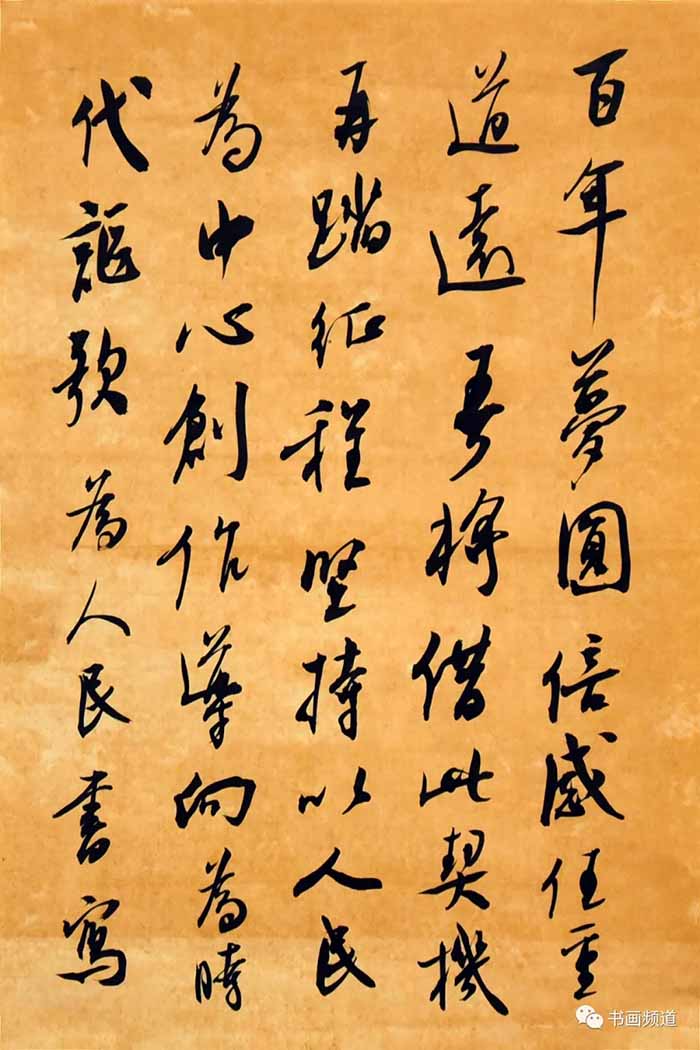 百年夢圓倍感任重
道遠吾將借此契機
再踏征程堅持以人民
為中心創作導向為時
代謳歌為人民書寫
书画频道